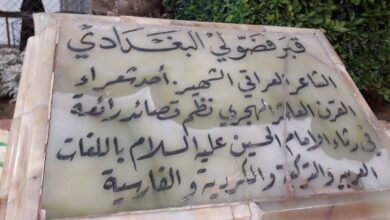 قبر فضولي البغدادي
الشاعر العراقي الشهير. أحد شعراء
القرن العاشر الهجري نظم قصائد رائعة
في رثاء الامام الحسين عليه السلام باللغات
العربية والتركية والكردية والفارسية